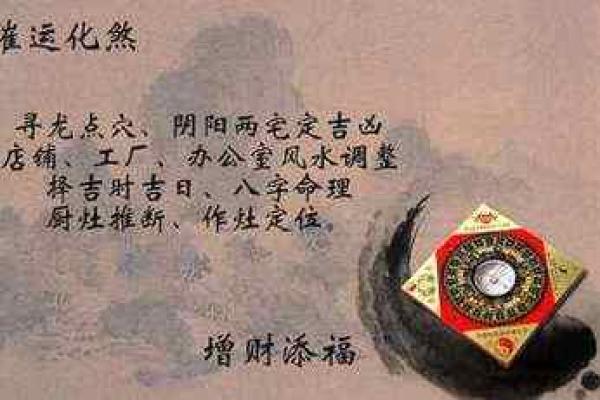 崔运化煞
寻龙点穴、阴阳两宅定吉凶
店铺、工厂、办公室风水调整
择吉时吉日、八字命理
厨灶推断、作灶定位。
增财添福